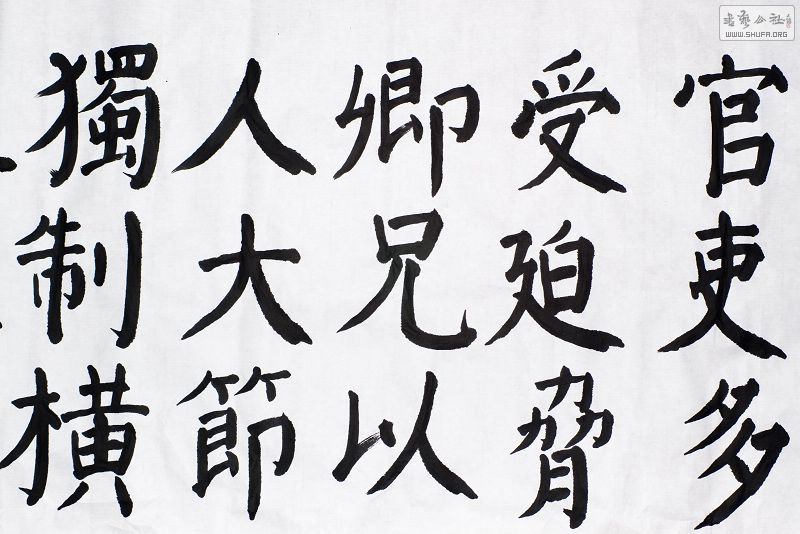 官吏多
受迫脅
卿兄以
人大節
獨制橫
WWW.SHUFA.ORG